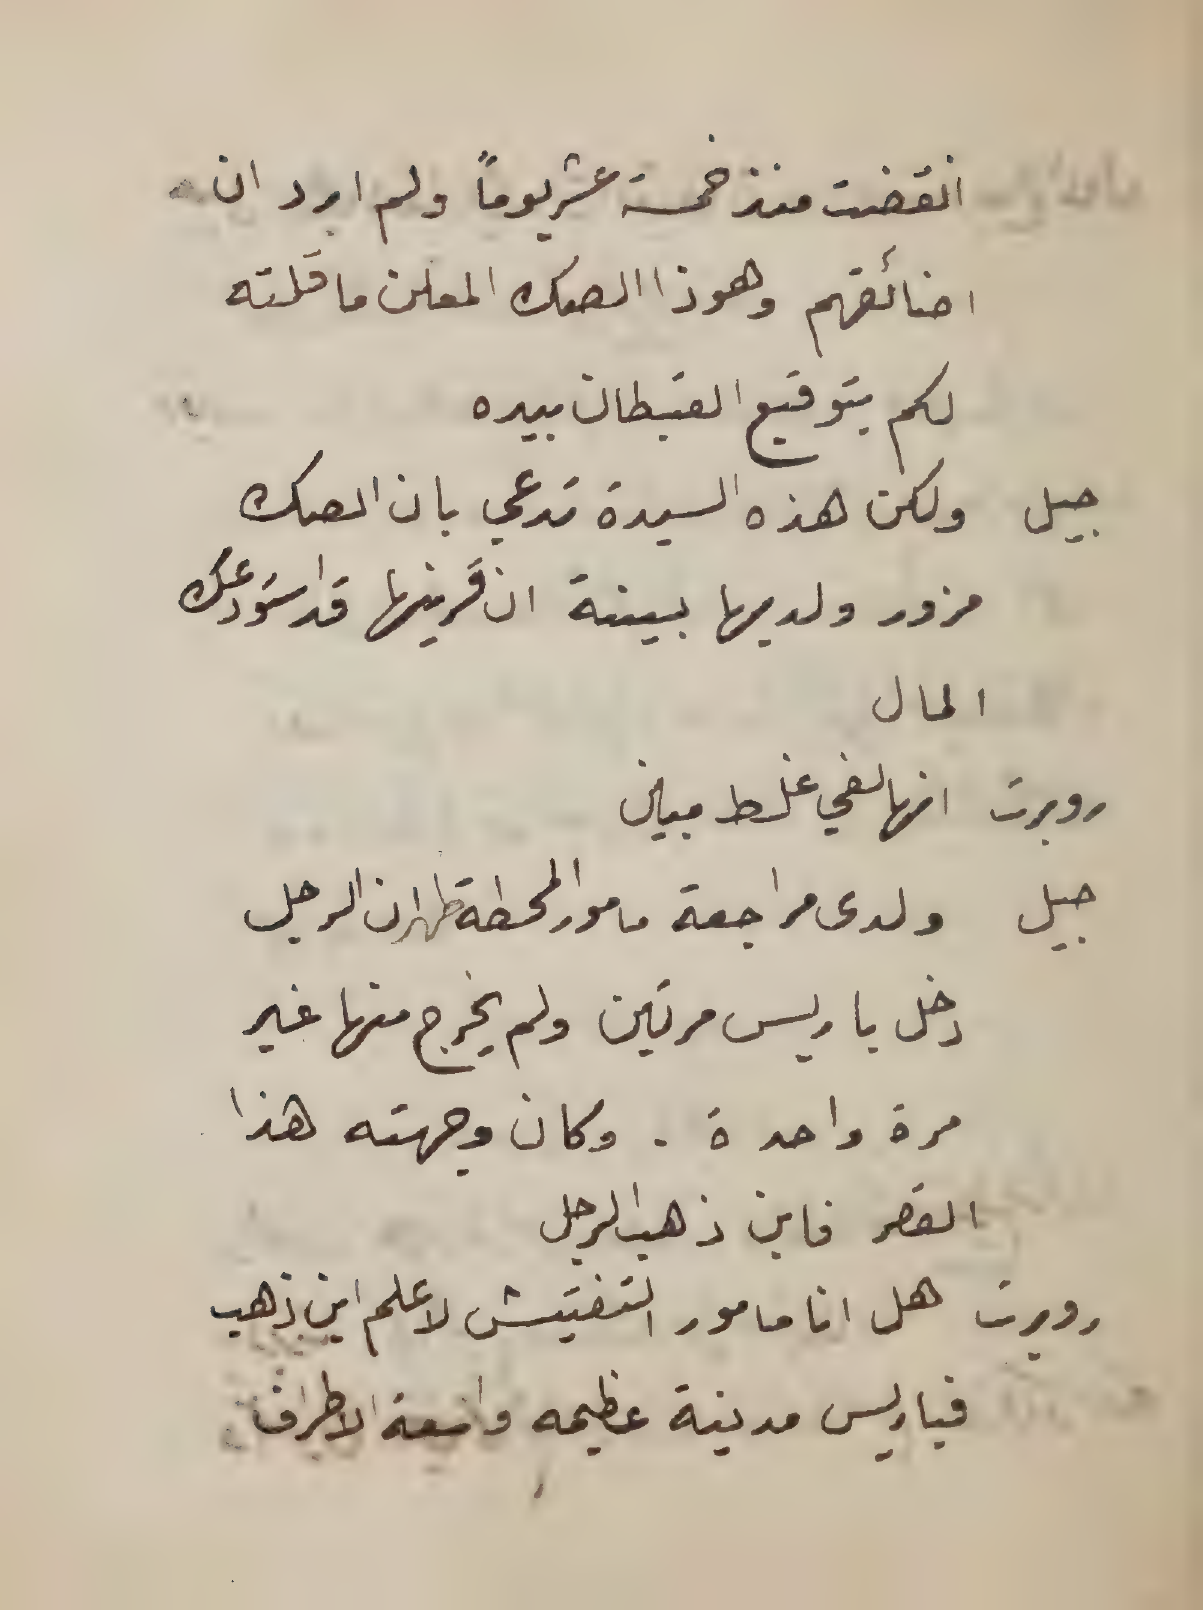 انقضت منذ خمسة عشر يوماً ولم ارد ان
اضائقهم وهوذا الصك المعلن ما قلته
لكم بتوقيع القبطان بيده
جيل ولكن هذه السيدة تدعي بان الصك
مزور ولديها بينة ان قرينها قد استودعك
المال
روبرت انها لفي غلط مبين
جيل ولدى مراجعة مامور المحطة ظهر ان الرجل
دخل باريس مرتين ولم يخرج منها غير
مرة واحدة . وكان وجهته هذا
القصر فاين ذهب الرجل
روبرت هل انا مامور التفتيش لاعلم اين ذهب
فباريس مدينة عظيمه واسعة الاطراف